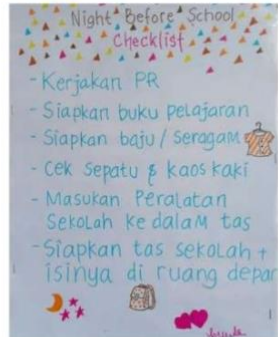 Night Before School
Checklist
- Kerjakan PR
- Siapkan buku pelajaran
- Siapkan baju / Seragam
- Cek Sepatu & kaos kaki
- Masukan Peralatan
Sekolah ke dalam tas
- Siapkan tas sekolah +
isinya di ruang depan